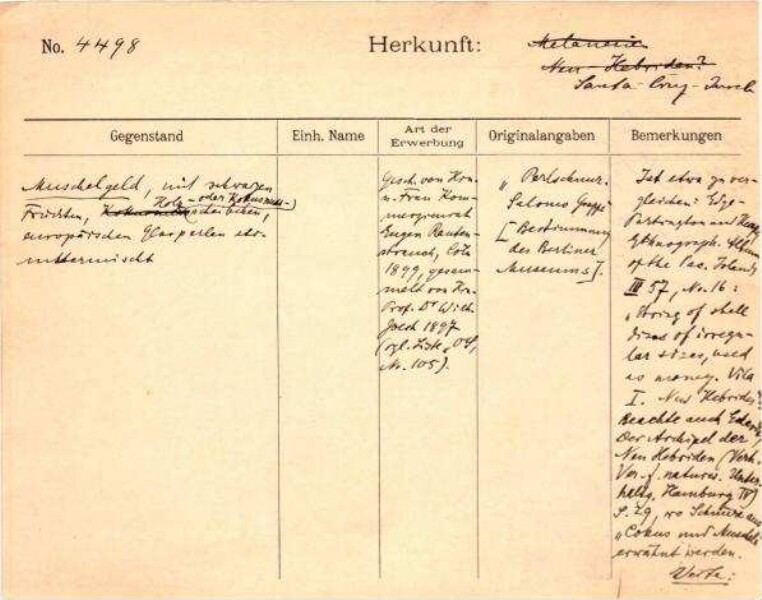 No. 4498
Herkunft:
Melanesien
Neu-Hebriden?
Santa-Cruz-Inseln
Gegenstand
Einh. Name
Art der Erwerbung
Originalangaben
Bemerkungen
Muschelgeld, mit schwarzen
Holz- oder Kokosnuss-
Früchten, scheiben,
europäischen Glasperlen etc.
untermischt
Gesch. von Hrn.
u. Frau Kom-
merzienrat
Eugen Rauten-
strauch, Cöln
1899, gesam-
melt von Hr.
Prof. Dr Wilh.
Joest 1897
(vgl. Liste
Nr. 105).
„Perlschnur.
Salomo Gruppe
[Bestimmung
des Berliner
Museums].
Ist etwa zu ver-
gleichen: Edge-
Partington and Heape
Ethnograph. Album
of the Pac. Islands
III 57, No. 16:
„String of shell
discs of irregu-
lar sizes, used
as money. Vila
I. New Hebrides"
Beachte auch
Der Archipel der
Neu Hebriden (Verh.
Ver. f. naturw. Unter-
haltg. Hamburg IV)
S. 29, wo Schnüre aus
„Cokus und Muscheln
erwähnt werden.
Verte: